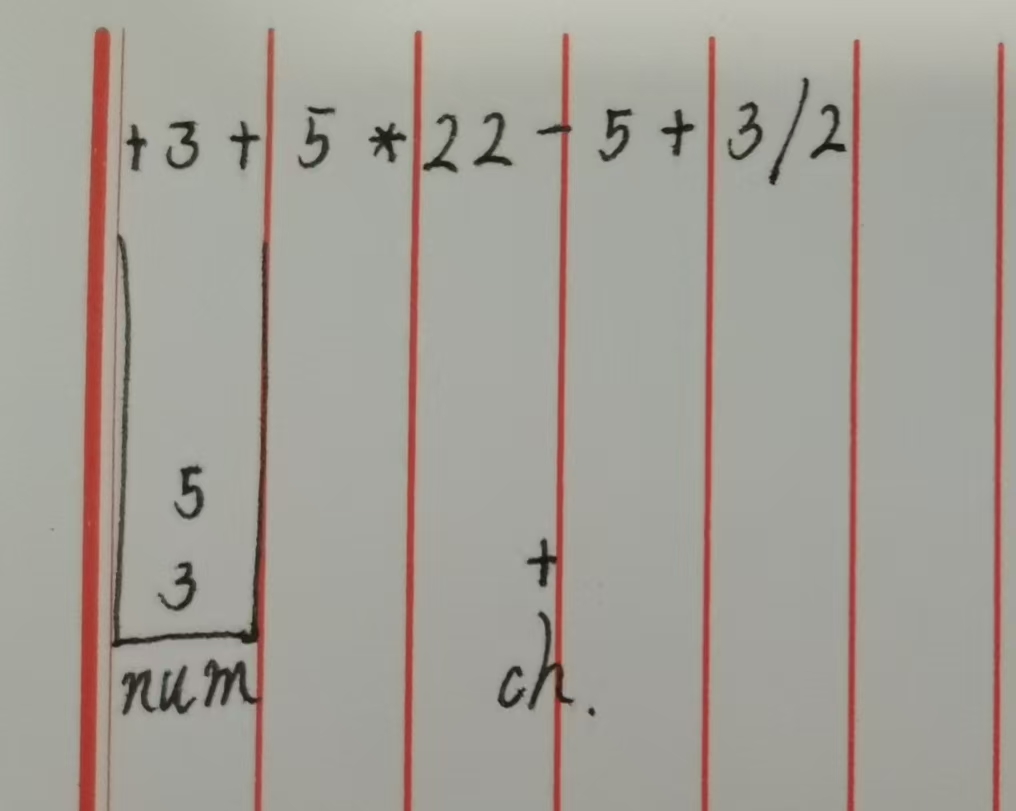 +3+5*22-5+3/2
5
+
3
num ch.